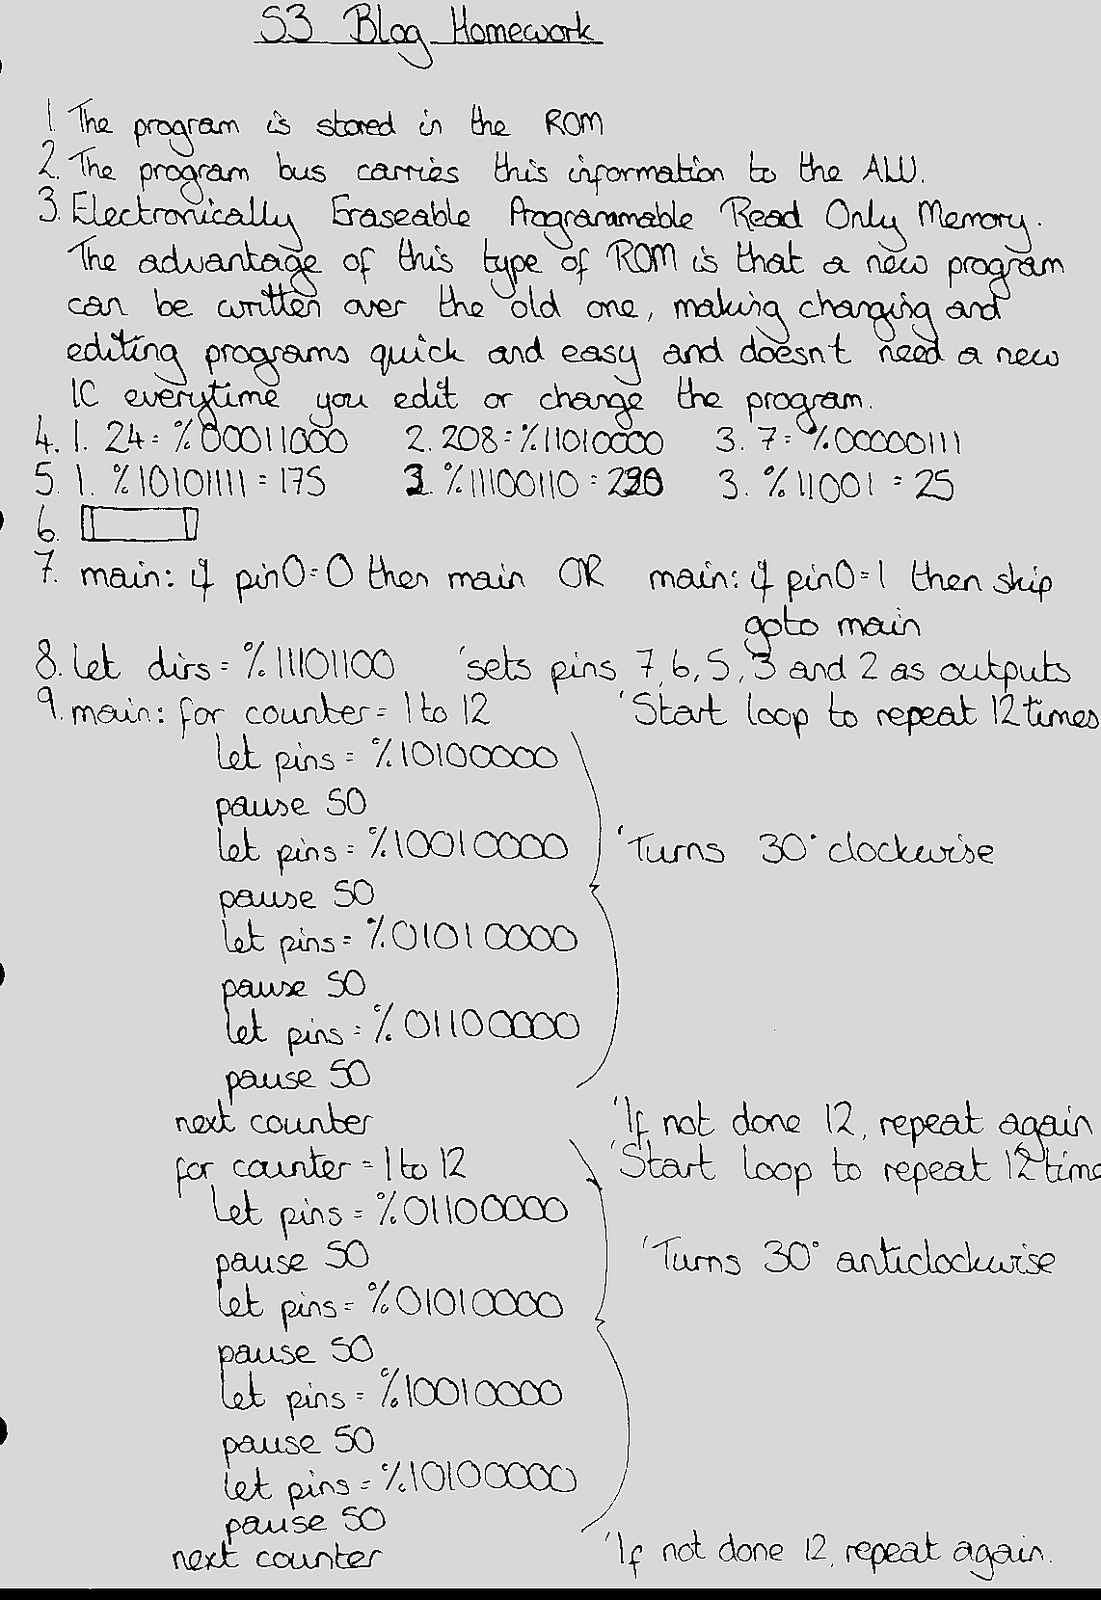 S3 Blog Homework
1. The program is stored in the ROM
2. The program bus carries this information to the ALU.
3. Electronically Eraseable Programmable Read Only Memory.
The advantage of this type of ROM is that a new program
can be written over the old one, making changing and
editing programs quick and easy and doesn't need a new
IC everytime you edit or change the program.
4. 1. 24 = %00011000 2. 208 = %11010000 3. 7 = %00000111
5. 1. %10101111 = 175 2. %11100110 = 230 3. %11001 = 25
6.
7. main: if pin0=0 then main OR main: if pin0=1 then skip
goto main
8. let dirs = %11101100 'sets pins 7,6,5,3 and 2 as outputs
9. main: for counter = 1 to 12 'Start loop to repeat 12 times
let pins = %10100000
pause 50
let pins = %10010000 'Turns 30° clockwise
pause 50
let pins = %01010000
pause 50
let pins = %01100000
pause 50
next counter 'If not done 12, repeat again
for counter = 1 to 12 'Start loop to repeat 12 time
let pins = %01100000
pause 50 'Turns 30° anticlockwise
let pins = %01010000
pause 50
let pins = %10010000
pause 50
let pins = %10100000
pause 50
next counter 'If not done 12, repeat again.